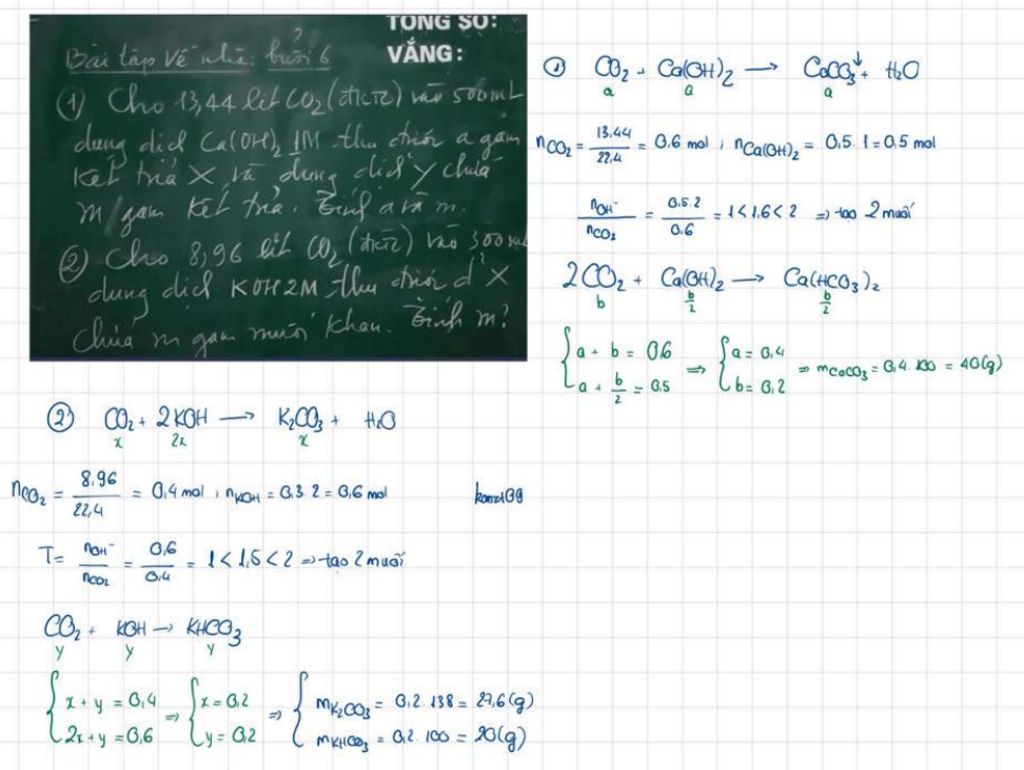 TỔNG SỐ:
VẮNG:
Bài tập về nhà: buổi 6
① Cho 13,44 lít CO₂ (đktc) vào 500mL
dung dịch Ca(OH)₂ 1M thu được a gam
kết tủa X và dung dịch Y chứa
m gam kết tủa. Tính a và m.
② Cho 8,96 lít CO₂ (đktc) vào 300mL
dung dịch KOH 2M thu được d² X
chứa m gam muối khan. Tính m?
① CO₂ + Ca(OH)₂ → CaCO₃↓ + H₂O
a a a
nCO₂ = 13,44/22,4 = 0,6 mol ; nCa(OH)₂ = 0,5 . 1 = 0,5 mol
nOH⁻/nCO₂ = 0,5.2/0,6 = 1 < 1,6 < 2 => tạo 2 muối
2CO₂ + Ca(OH)₂ → Ca(HCO₃)₂
b b/2 b/2
{ a + b = 0,6 => { a = 0,4 => mCaCO₃ = 0,4 . 100 = 40(g)
a + b/2 = 0,5 b = 0,2
② CO₂ + 2KOH → K₂CO₃ + H₂O
x 2x x
nCO₂ = 8,96/22,4 = 0,4 mol , nKOH = 0,3 . 2 = 0,6 mol
T = nOH⁻/nCO₂ = 0,6/0,4 = 1 < 1,5 < 2 => tạo 2 muối
CO₂ + KOH → KHCO₃
y y y
{ x + y = 0,4 => { x = 0,2 => { mK₂CO₃ = 0,2 . 138 = 27,6(g)
2x + y = 0,6 y = 0,2 mKHCO₃ = 0,2 . 100 = 20(g)